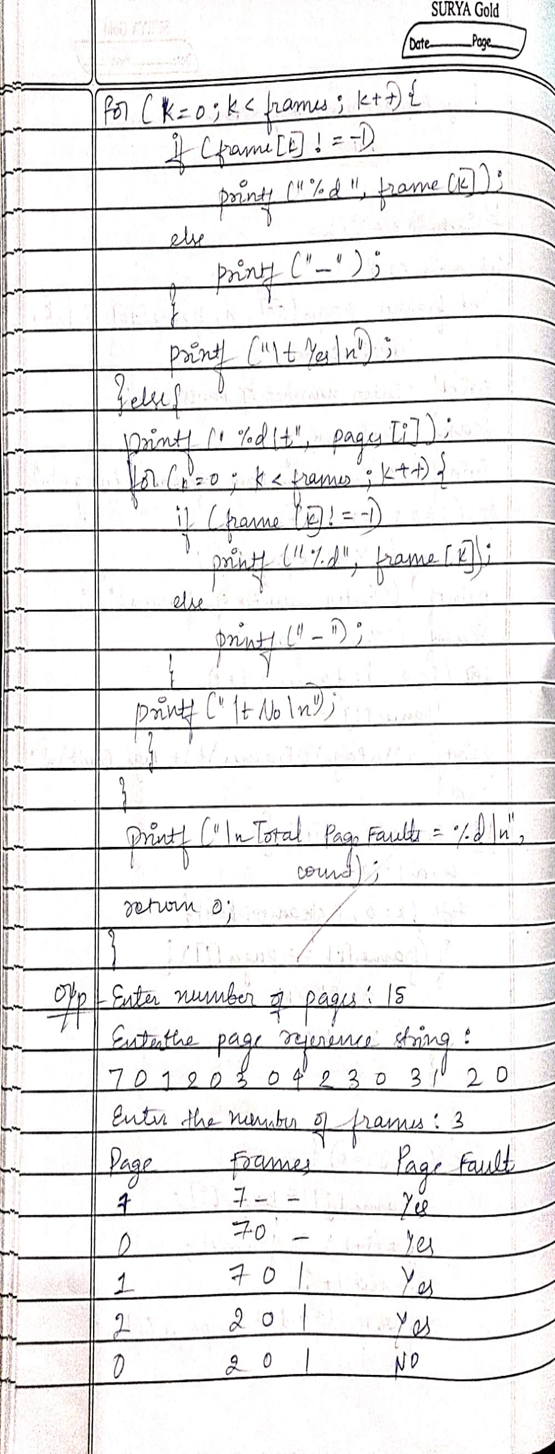 SURYA Gold
Date Page
for (k=0; k< frames; k++){
if (frame[k] != -1)
printf ("%d", frame[k]);
else
printf ("-");
}
printf ("\t Yes\n");
}else{
printf (" %d\t", pages[i]);
for (k=0; k< frames; k++){
if (frame [k]!= -1)
printf ("%d", frame [k]);
else
printf ("-");
}
printf ("\t No\n");
}
}
printf ("\n Total Page Faults = %d\n",
count);
return 0;
}
O/p Enter number of pages: 15
Enter the page reference string:
7 0 1 2 0 3 0 4 2 3 0 3 1 2 0
Enter the number of frames: 3
Page Frames Page Fault
7 7 - - Yes
0 7 0 - Yes
1 7 0 1 Yes
2 2 0 1 Yes
0 2 0 1 NO